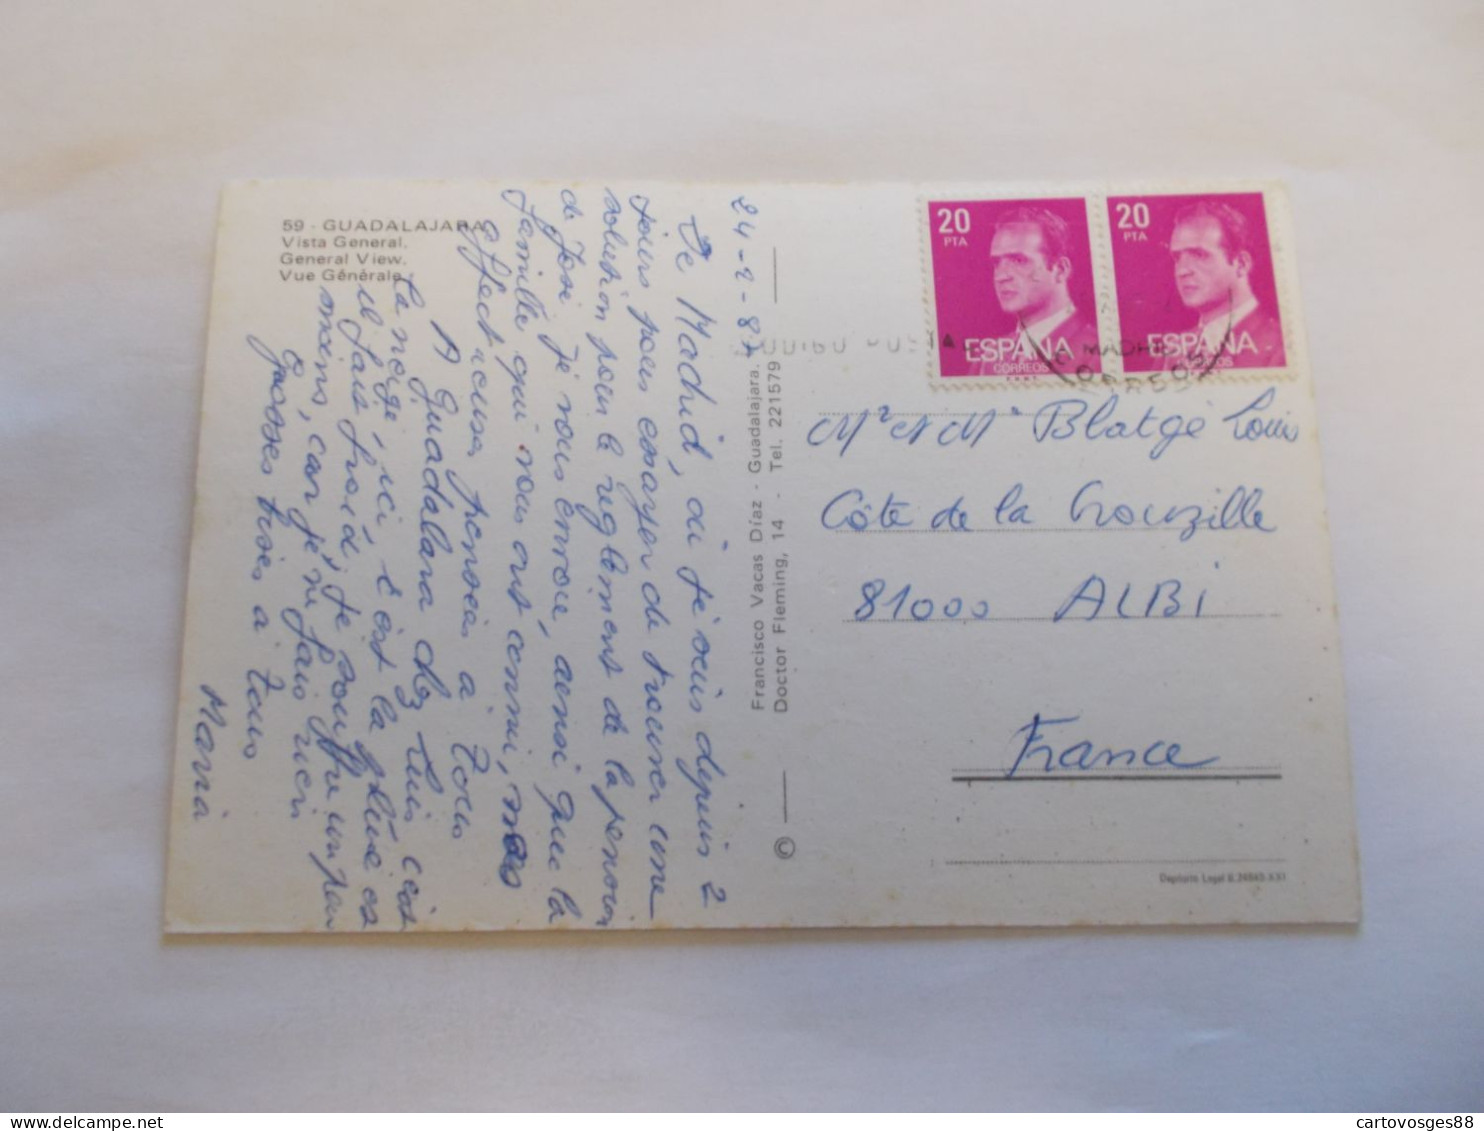 59 - GUADALAJARA
Vista General.
General View.
Vue Générale.
24-2-87
De Madrid, où je suis depuis 2
jours pour essayer de trouver une
solution pour le reglement de la pension
de José, je vous envoie, ainsi que la
famille qui vous ont connu, nos
affectueuses pensées à tous
A Guadalara chez Luis c'est
la neige, ici c'est la pluie et
il fait froid, je souffre un peu
moins, car je ne fais rien
Grosses bises à tous
Maria
Francisco Vacas Díaz - Guadalajara.
Doctor Fleming, 14 - Tel. 221579
©
20
PTA
ESPAÑA
CORREOS
20
PTA
ESPAÑA
CORREOS
MADRID
Mr et Me Blatgé Louis
Côte de la
81000 ALBI
France
Depósito Legal B.
cartovosges88